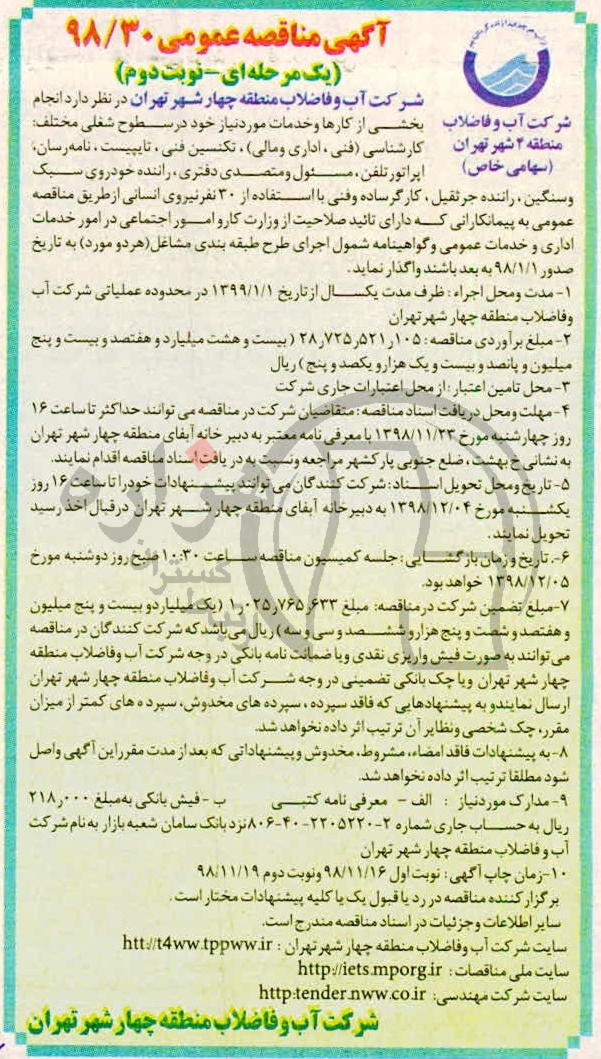 آگهی مناقصه عمومی ۹۸/۳۰
(یک مرحله ای - نوبت دوم)
شرکت آب و فاضلاب
منطقه ۴ شهر تهران
(سهامی خاص)
شرکت آب و فاضلاب منطقه چهار شهر تهران در نظر دارد انجام
بخشی از کارها و خدمات موردنیاز خود در سطوح شغلی مختلف:
کارشناسی (فنی ، اداری ومالی) ، تکنسین فنی ، تایپیست ، نامه رسان،
اپراتور تلفن ، مسئول ومتصدی دفتری ، راننده خودروی سبک
وسنگین ، راننده جرثقیل ، کارگر ساده وفنی با استفاده از ۳۰ نفر نیروی انسانی از طریق مناقصه
عمومی به پیمانکارانی که دارای تائید صلاحیت از وزارت کار و امور اجتماعی در امور خدمات
اداری و خدمات عمومی و گواهینامه شمول اجرای طرح طبقه بندی مشاغل(هر دو مورد) به تاریخ
صدور ۹۸/۱/۱ به بعد باشند واگذار نماید .
۱- مدت ومحل اجراء : ظرف مدت یکسال از تاریخ ۱۳۹۹/۱/۱ در محدوده عملیاتی شرکت آب
وفاضلاب منطقه چهار شهر تهران
۲- مبلغ برآوردی مناقصه : ۲۸٫۷۲۵٫۵۲۱٫۱۰۵ ( بیست و هشت میلیارد و هفتصد و بیست و پنج
میلیون و پانصد و بیست و یک هزار و یکصد و پنج ) ریال
۳- محل تامین اعتبار : از محل اعتبارات جاری شرکت
۴- مهلت ومحل دریافت اسناد مناقصه : متقاضیان شرکت در مناقصه می توانند حداکثر تا ساعت ۱۶
روز چهارشنبه مورخ ۱۳۹۸/۱۱/۲۳ با معرفی نامه معتبر به دبیر خانه آبفای منطقه چهار شهر تهران
به نشانی خ بهشت ، ضلع جنوبی پارکشهر مراجعه ونسبت به دریافت اسناد مناقصه اقدام نمایند.
۵- تاریخ ومحل تحویل اسناد : شرکت کنندگان می توانند پیشنهادات خودرا تا ساعت ۱۶ روز
یکشنبه مورخ ۱۳۹۸/۱۲/۰۴ به دبیرخانه آبفای منطقه چهار شهر تهران در قبال اخذ رسید
تحویل نمایند.
۶-. تاریخ وزمان بازگشایی : جلسه کمیسیون مناقصه ساعت ۱۰:۳۰ صبح روز دوشنبه مورخ
۱۳۹۸/۱۲/۰۵ خواهد بود.
۷-مبلغ تضمین شرکت در مناقصه: مبلغ ۱٫۰۲۵٫۷۶۵٫۶۳۳ (یک میلیارد و بیست و پنج میلیون
و هفتصد و شصت و پنج هزار و ششصد و سی و سه ) ریال می باشد که شرکت کنندگان در مناقصه
می توانند به صورت فیش واریزی نقدی ویا ضمانت نامه بانکی در وجه شرکت آب وفاضلاب منطقه
چهار شهر تهران ویا چک بانکی تضمینی در وجه شرکت آب وفاضلاب منطقه چهار شهر تهران
ارسال نمایندو به پیشنهادهایی که فاقد سپرده ، سپرده های مخدوش، سپرده های کمتر از میزان
مقرر، چک شخصی ونظایر آن ترتیب اثر داده نخواهد شد.
۸- به پیشنهادات فاقد امضاء، مشروط، مخدوش و پیشنهاداتی که بعد از مدت مقرر این آگهی واصل
شود مطلقا ترتیب اثر داده نخواهد شد.
۹- مدارک موردنیاز : الف - معرفی نامه کتبی ب - فیش بانکی به مبلغ ۲۱۸٫۰۰۰
ریال به حساب جاری شماره ۲-۲۲۰۵۲۲۰-۴۰-۸۰۶ نزد بانک سامان شعبه بازار به نام شرکت
آب و فاضلاب منطقه چهار شهر تهران
۱۰-زمان چاپ آگهی : نوبت اول ۹۸/۱۱/۱۶ ونوبت دوم ۹۸/۱۱/۱۹
برگزار کننده مناقصه در رد یا قبول یک یا کلیه پیشنهادات مختار است .
سایر اطلاعات و جزئیات در اسناد مناقصه مندرج است.
سایت شرکت آب وفاضلاب منطقه چهار شهر تهران : htt://t4ww.tppww.ir
سایت ملی مناقصات : http://iets.mporg.ir
سایت شرکت مهندسی: http:tender.nww.co.ir
شرکت آب و فاضلاب منطقه چهار شهر تهران
هزاره